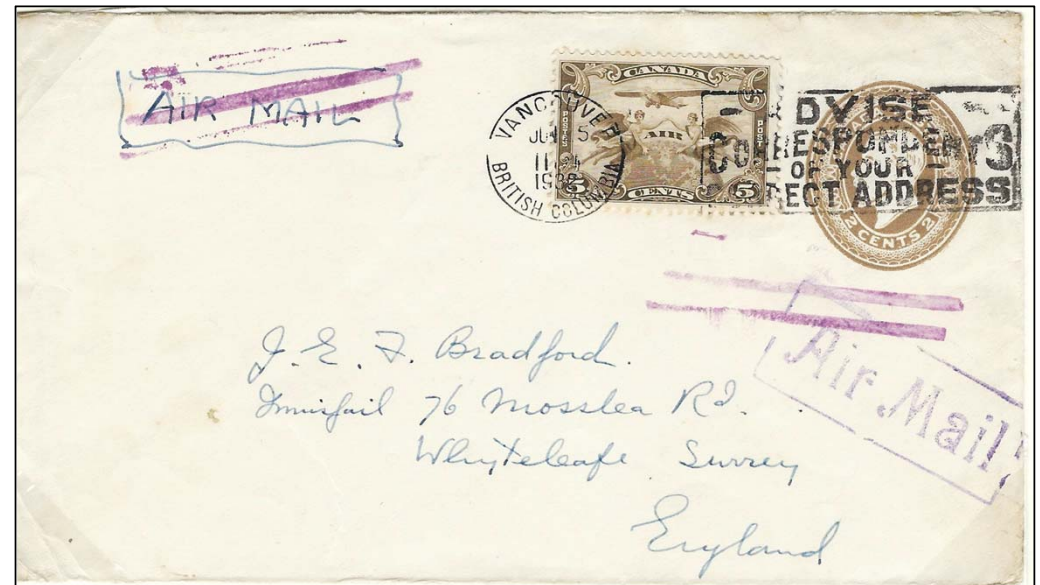 AIR MAIL
VANCOUVER
5
BRITISH COLUMBIA
CANADA
POSTES
AIR
POST
5 CENTS 5
ADVISE
CORRESPONDENTS
OF YOUR
CORRECT ADDRESS
2 CENTS 2
Air Mail
J. E. F. Bradford.
Innisfail 76 Mosslea Rd.
Whyteleafe Surrey
England